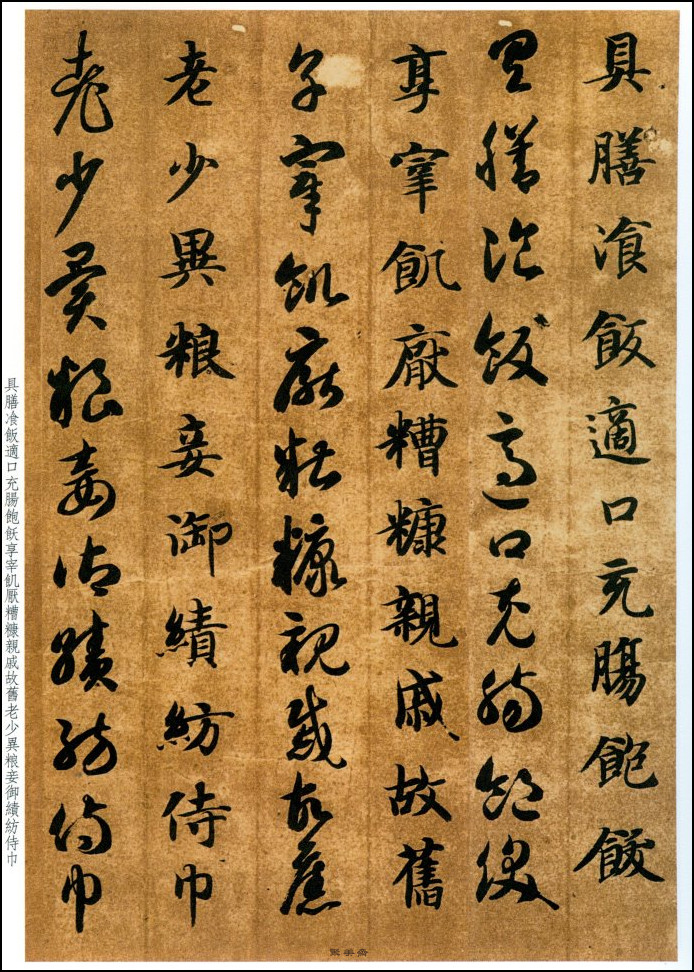 具膳飡飯適口充腸飽飫
具膳飡飯適口充腸飽飫
享宰飢厭糟糠親戚故舊
享宰飢厭糟糠親戚故舊
老少異粮妾御績紡侍巾
老少異粮妾御績紡侍巾
具膳飡飯適口充腸飽飫享宰飢厭糟糠親戚故舊老少異粮妾御績紡侍巾